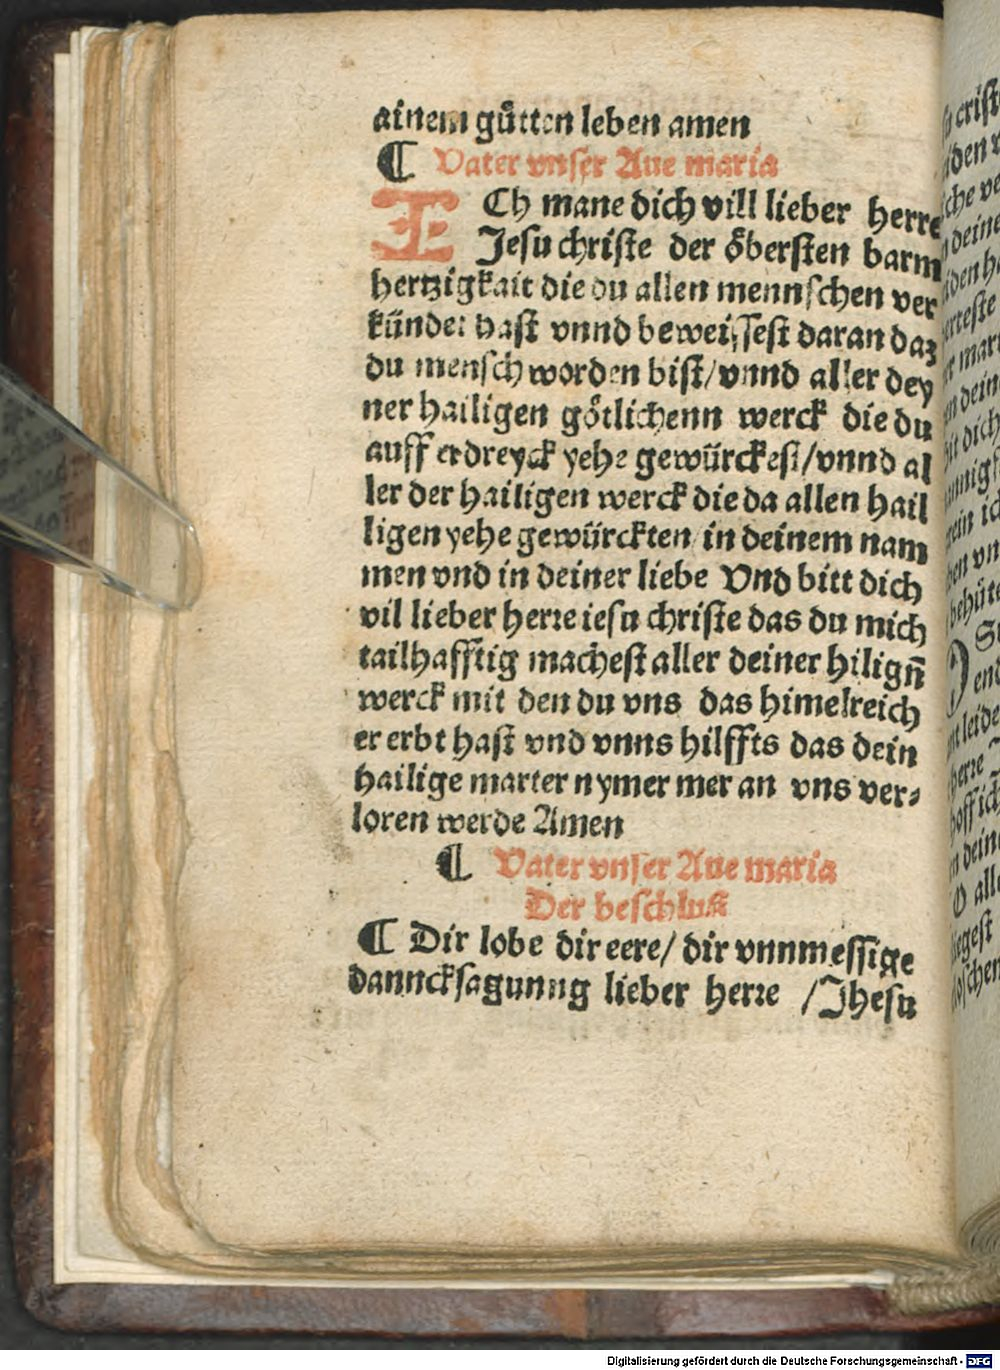 ainem gůtten leben amen
¶ Vater vnser Aue maria
ICh mane dich vill lieber herre
Jesu christe der öbersten barm
hertzigkait die du allen mennschen ver
kündet hast vnnd beweissest daran daz
du mensch worden bist/vnnd aller dey
ner hailigen götlichenn werck die du
auff erdreyck yehe gewürckest/vnnd al
ler der hailigen werck die da allen hail
ligen yehe gewürckten in deinem nam
men vnd in deiner liebe Vnd bitt dich
vil lieber herre iesu christe das du mich
tailhafftig machest aller deiner hilign̄
werck mit den du vns das himelreich
er erbt hast vnd vnns hilffts das dein
hailige marter nymer mer an vns ver⸗
loren werde Amen
¶ Vater vnser Aue maria
Der beschluß
¶ Dir lobe dir eere/ dir vnnmessige
danncksagunng lieber herre /Jhesu
Digitalisierung gefördert durch die Deutsche Forschungsgemeinschaft - DFG